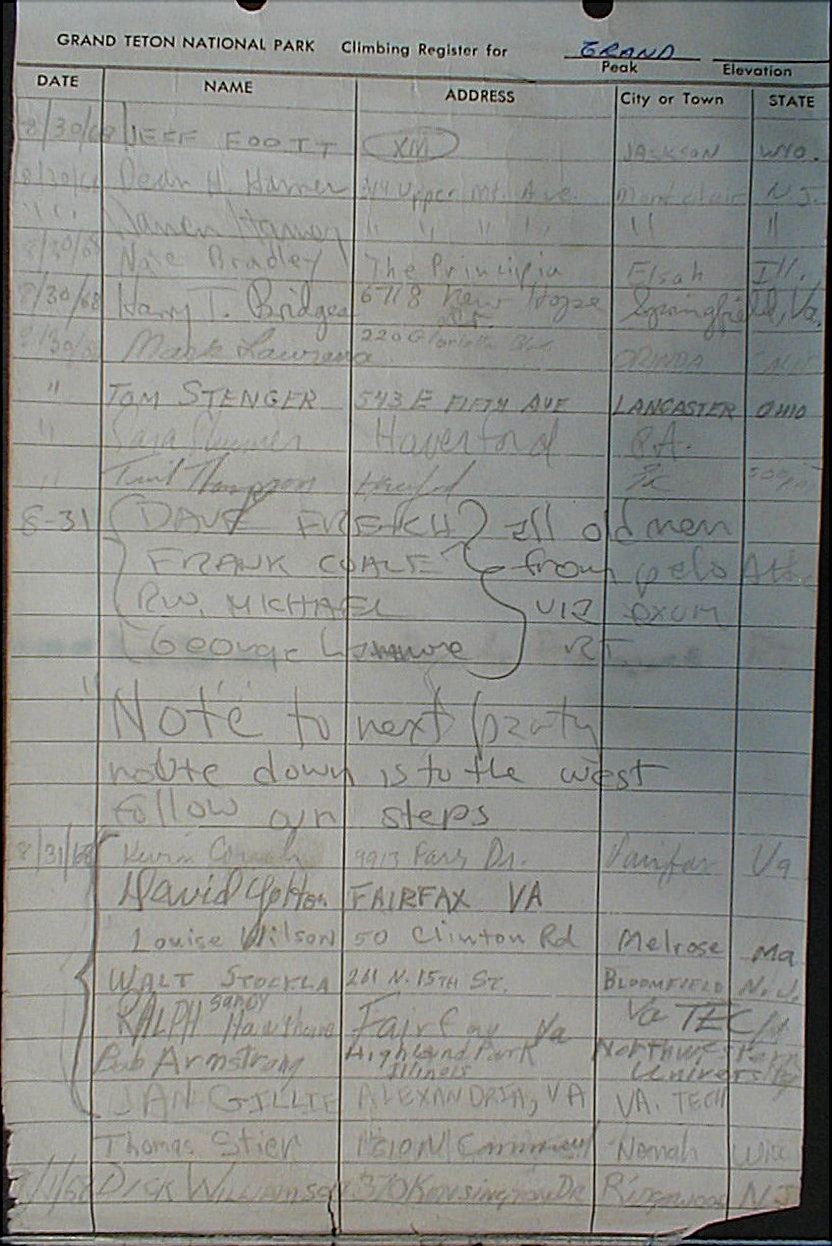 GRAND TETON NATIONAL PARK Climbing Register for GRAND
Peak Elevation
DATE NAME ADDRESS City or Town STATE
8/30/68 JEFF FOOTT XM JACKSON WYO.
Dean H. Upper Mt. Ave. Montclair N.J.
" " " " " " " "
8/30/68 Bradley The Principia Elsah Ill.
8/30/68 Harry T. Bridges 6718 New Hope Dr. Springfield, Va.
8/30/68 Mark ORINDA
" TOM STENGER 543 E FIFTH AVE LANCASTER OHIO
" Haverford PA.
" Thompson
8-31 DAVE FRENCH all old men
FRANK COALE from
RW. MICHAEL VIA EXUM
George RT.
" Note to next party
route down is to the west
Follow our steps
8/31/68 Kevin 9913 Dr. Fairfax Va
David FAIRFAX VA
Louise Wilson 50 Clinton Rd Melrose Ma
WALT 261 N. 15TH ST. BLOOMFIELD N.J.
RALPH Sandy Hawthorne Fairfax Va Va TECH
Bob Armstrong Highland Park Illinois Northwestern University
JAN GILLIE ALEXANDRIA, VA VA. TECH
Thomas Stier N Commercial Neenah Wisc
9/1/68 DICK WILLIAMSON 370 Kensington Dr. Ringwood NJ